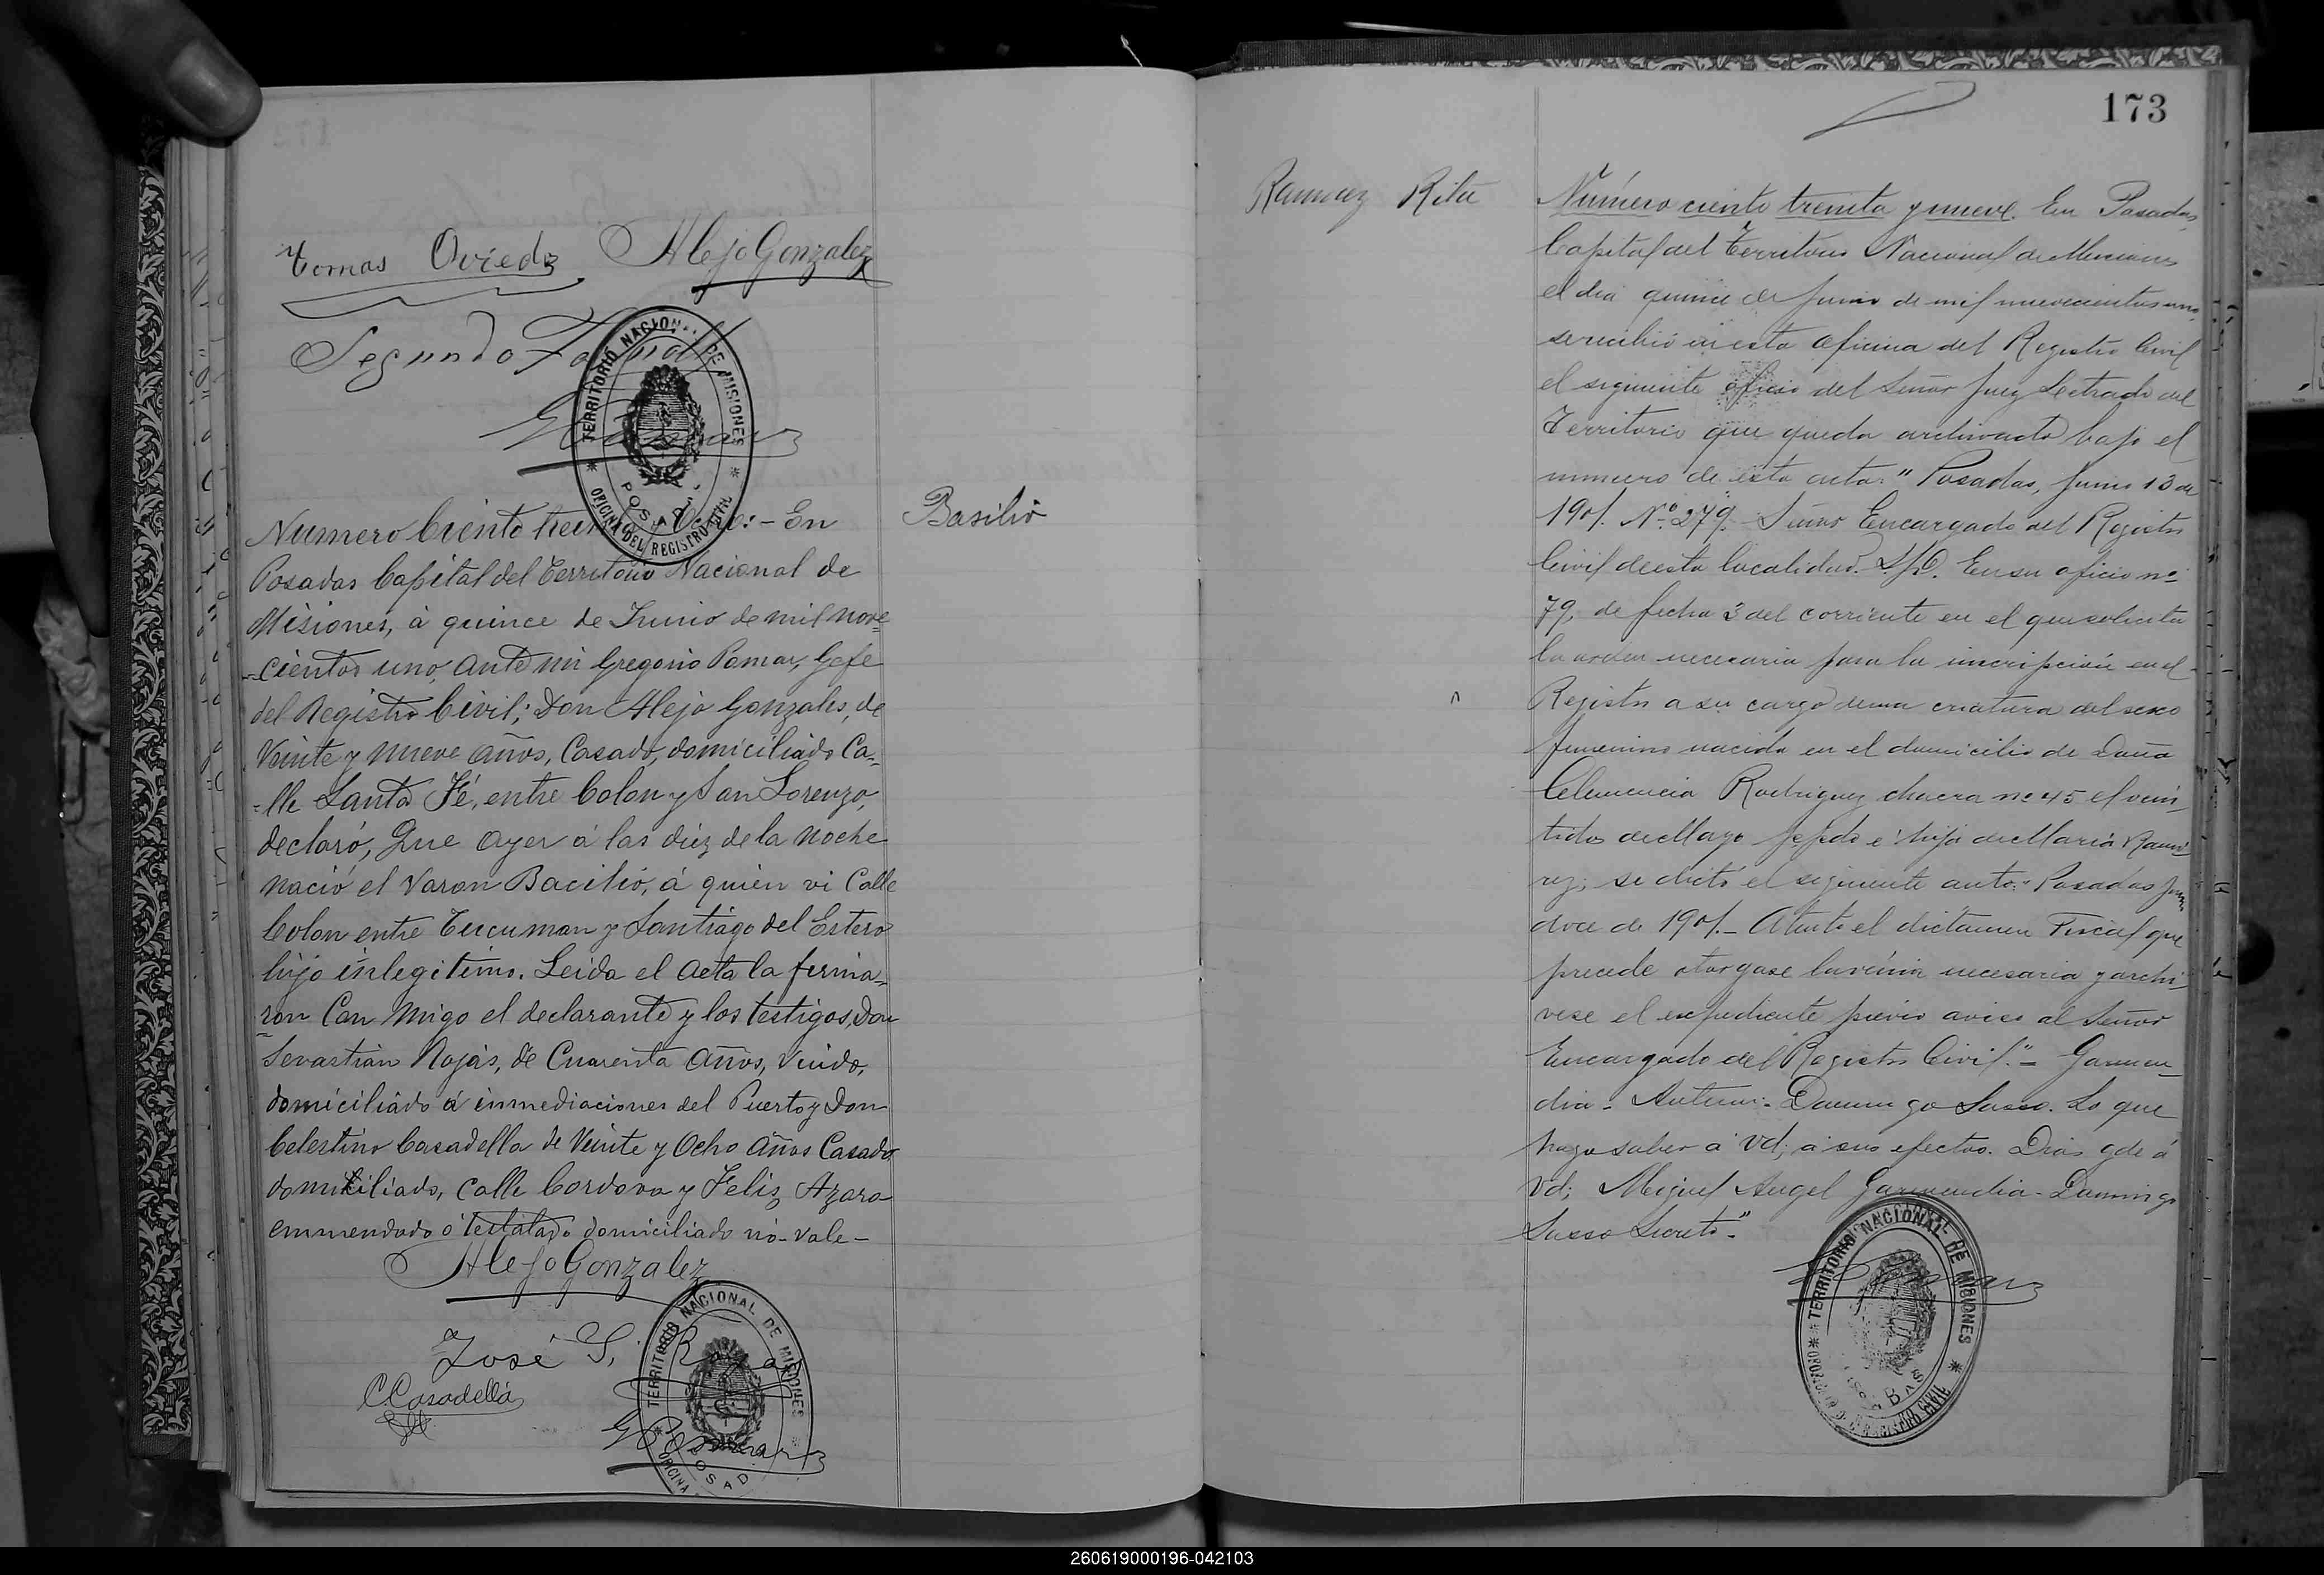 Tomas Oviedo Alejo Gonzalez
Segundo
TERRITORIO NACIONAL DE MISIONES
POSADAS
OFICINA DEL REGISTRO CIVIL
Numero Ciento :- En
Posadas Capital del Territorio Nacional de
Misiones, á quince de Junio de mil nove=
=cientos uno, ante mi Gregorio Pomar, Gefe
del Registro Civil; Don Alejo Gonzales, de
Veinte y nueve años, Casado, domiciliado Ca=
=lle Santa Fé, entre Colon y San Lorenzo,
declaró, Que Ayer á las diez de la noche
nació el Varon Bacilio, á quien vi Calle
Colon entre Tucuman y Santiago del Estero
hijo inlegitimo. Leida el acta la firma=
=ron Con migo el declarante y los testigos, Don
Sevastian Rojas, de Cuarenta años, Viudo,
domiciliado á inmediaciones del Puerto y Don
Celestino Casadella de Veinte y Ocho años Casado
domiciliado, Calle Cordova y Felis Azara
emmendado ó testatado domiciliado no-vale-
Alejo Gonzalez
José S. Rojas
C. Casadellá
G. Pomar
TERRITORIO NACIONAL DE MISIONES
POSAD
OFICINA
Basilio
173
Ramirez Rita
Número ciento treinta y nueve. En Posadas
Capital del Territorio Nacional de Misiones
el dia quince de Junio de mil nuevecientos uno
se recibió en esta oficina del Registro Civil
el siguiente oficio del Señor Juez Letrado del
Territorio que queda archivado bajo el
numero de esta acta: "Posadas, Junio 13 de
1901. No. 279. Señor Encargado del Registro
Civil de esta localidad. S/D. En su oficio no.
79, de fecha 3 del corriente en el que solicita
la orden necesaria para la inscripcion en el
Registro a su cargo de una criatura del sexo
femenino nacida en el domicilio de Doña
Clemencia Rodriguez chacra no 45 el vein
tidos de Mayo ppdo é hija de Maria Rami
rez; se dictó el siguiente auto: "Posadas Junio
doce de 1901.- Atento el dictamen Fiscal que
precede otorgase la vénia necesaria y archi
vese el expediente previo aviso al Señor
Encargado del Registro Civil."- Garmen
dia- Antemi- Domingo Sasso. Lo que
hago saber a Vd; a sus efectos. Dios gde á
Vd; Miguel Angel Garmendia- Domingo
Sasso Secreto."
TERRITORIO NACIONAL DE MISIONES
260619000196-042103